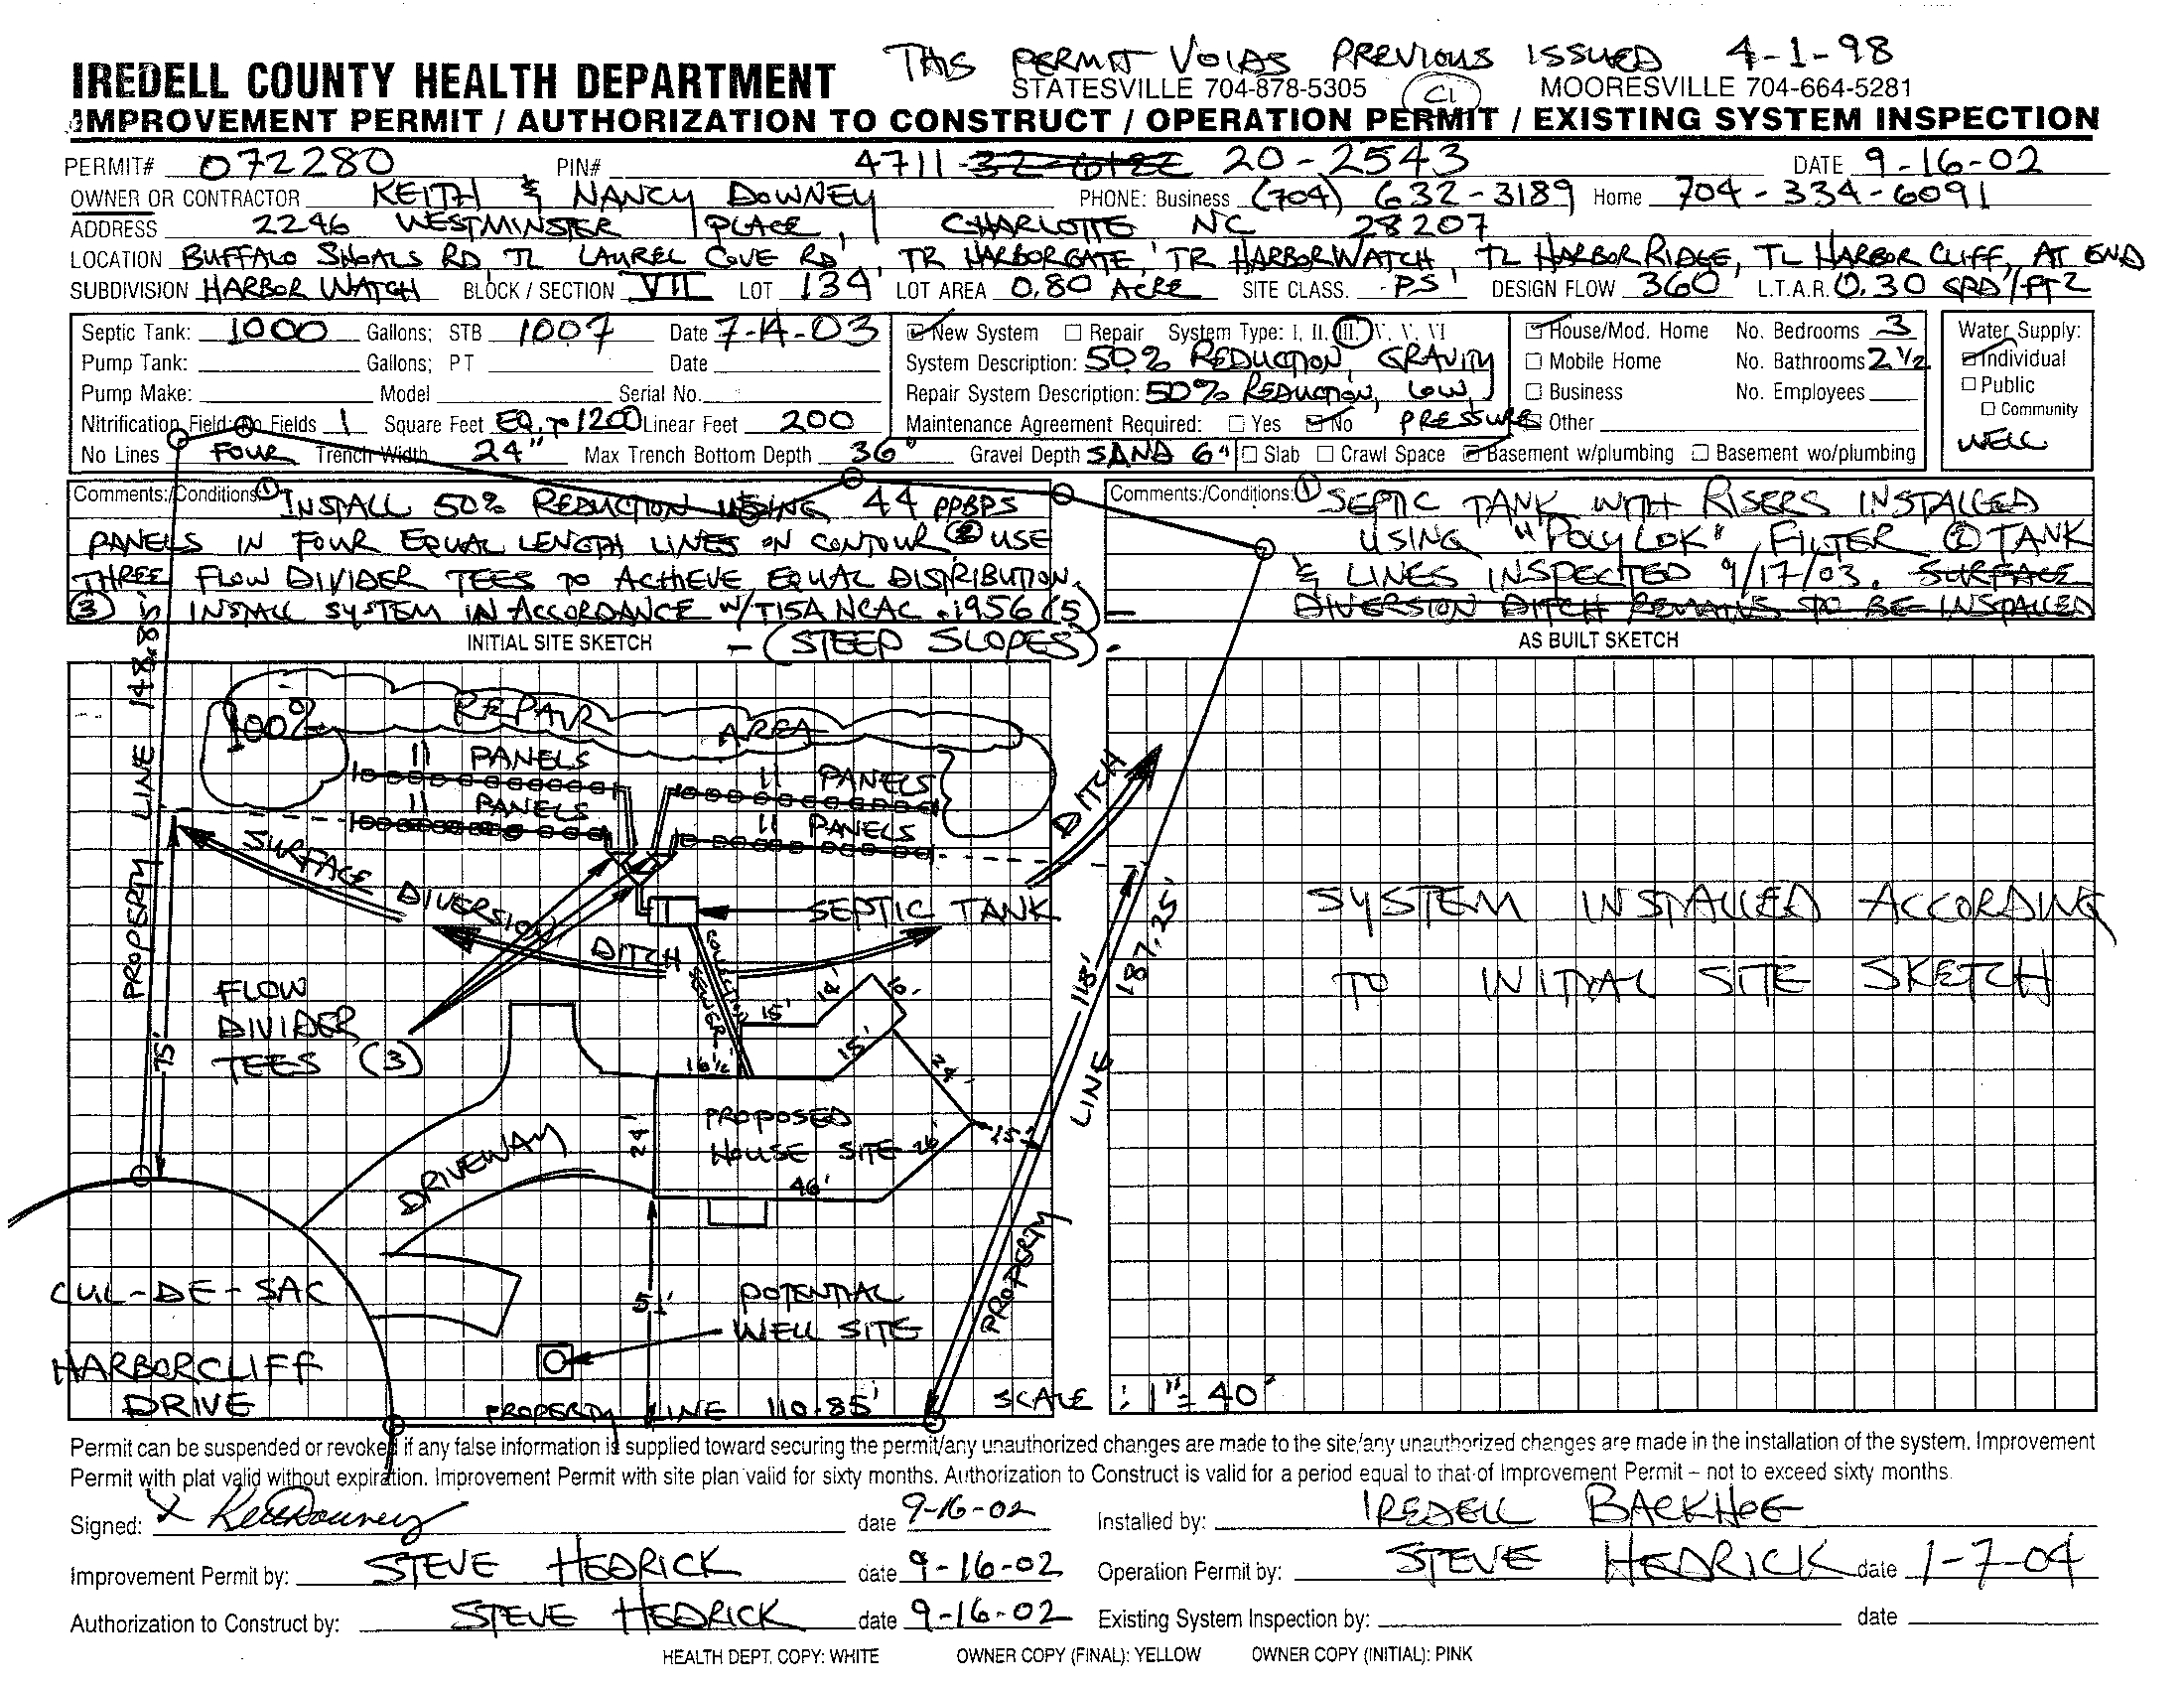 THIS PERMIT VOIDS PREVIOUS ISSUED 4-1-98
IREDELL COUNTY HEALTH DEPARTMENT STATESVILLE 704-878-5305 CI MOORESVILLE 704-664-5281
IMPROVEMENT PERMIT / AUTHORIZATION TO CONSTRUCT / OPERATION PERMIT / EXISTING SYSTEM INSPECTION
PERMIT# 072280 PIN# 4711- 20-2543 DATE 9-16-02
OWNER OR CONTRACTOR KEITH & NANCY DOWNEY PHONE: Business (704) 632-3189 Home 704-334-6091
ADDRESS 2246 WESTMINSTER PLACE, CHARLOTTE NC 28207
LOCATION BUFFALO SHOALS RD, TL LAUREL COVE RD, TR HARBORGATE, TR HARBORWATCH, TL HARBOR RIDGE, TL HARBOR CLIFF, AT END
SUBDIVISION HARBOR WATCH BLOCK / SECTION VII LOT 134 LOT AREA 0.80 ACRE SITE CLASS. PS DESIGN FLOW 360 L.T.A.R. 0.30 GPD/FT2
Septic Tank: 1000 Gallons; STB 1007 Date 7-14-03
Pump Tank: Gallons; PT Date
Pump Make: Model Serial No.
Nitrification Field: No Fields 1 Square Feet EQ. TO 1200 Linear Feet 200
No Lines FOUR Trench Width 24" Max Trench Bottom Depth 36" Gravel Depth SAND 6"
New System Repair System Type: I, II, III, V, V, VI
System Description: 50% REDUCTION, GRAVITY
Repair System Description: 50% REDUCTION, LOW
Maintenance Agreement Required: Yes No PRESSURE
House/Mod. Home No. Bedrooms 3
Mobile Home No. Bathrooms 2 1/2
Business No. Employees
Other
Slab Crawl Space Basement w/plumbing Basement wo/plumbing
Water Supply:
Individual
Public
Community
WELL
Comments:/Conditions: ① INSTALL 50% REDUCTION USING 44 PPBPS
PANELS IN FOUR EQUAL LENGTH LINES ON CONTOUR ② USE
THREE FLOW DIVIDER TEES TO ACHIEVE EQUAL DISTRIBUTION.
③ INSTALL SYSTEM IN ACCORDANCE W/T15A NCAC .1956(5) -
- (STEEP SLOPES).
Comments:/Conditions: ① SEPTIC TANK WITH RISERS INSTALLED
USING "POLYLOK" FILTER ② TANK
& LINES INSPECTED 9/17/03. SURFACE
DIVERSION DITCH REMAINS TO BE INSTALLED
INITIAL SITE SKETCH
AS BUILT SKETCH
PROPERTY LINE 148.85'
100% REPAIR AREA
11 PANELS
11 PANELS
11 PANELS
11 PANELS
DITCH
SURFACE DIVERSION DITCH
SEPTIC TANK
COLLECTION SEWER
FLOW
DIVIDER
TEES (3)
75'
15' 18' 10'
16½' 15' 24'
PROPOSED
HOUSE SITE 26'
24'
46'
15'
DRIVEWAY
118'
PROPERTY LINE 187.25'
CUL-DE-SAC
HARBORCLIFF
DRIVE
51'
POTENTIAL
WELL SITE
PROPERTY LINE 110.85'
SCALE : 1" = 40'
SYSTEM INSTALLED ACCORDING
TO INITIAL SITE SKETCH
Permit can be suspended or revoked if any false information is supplied toward securing the permit/any unauthorized changes are made to the site/any unauthorized changes are made in the installation of the system. Improvement
Permit with plat valid without expiration. Improvement Permit with site plan valid for sixty months. Authorization to Construct is valid for a period equal to that of Improvement Permit – not to exceed sixty months.
Signed: X Keith Downey date 9-16-02 Installed by: IREDELL BACKHOE
Improvement Permit by: STEVE HEDRICK date 9-16-02 Operation Permit by: STEVE HEDRICK date 1-7-04
Authorization to Construct by: STEVE HEDRICK date 9-16-02 Existing System Inspection by: date
HEALTH DEPT. COPY: WHITE OWNER COPY (FINAL): YELLOW OWNER COPY (INITIAL): PINK